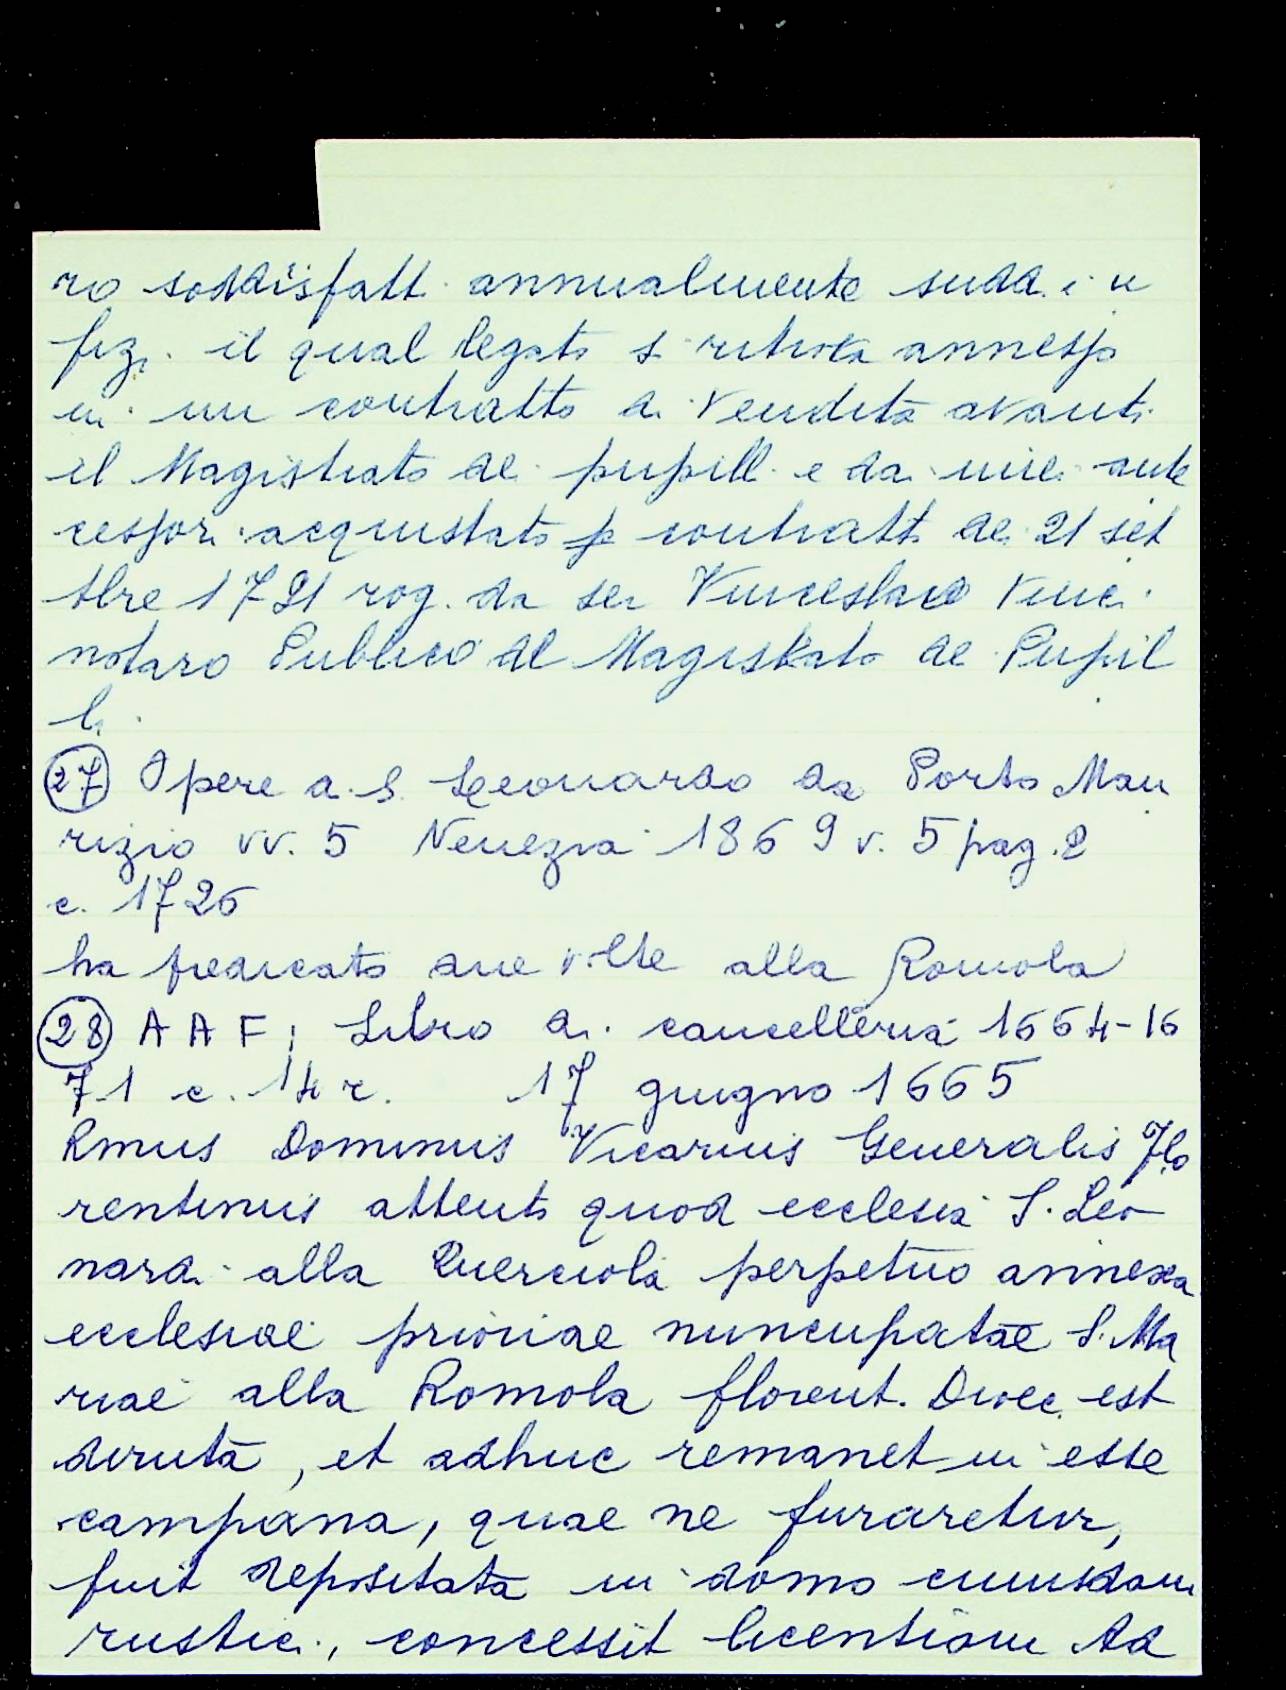 ro soddisfatti annualmente sudd. i u
fizi. il qual legato si ritrova annesso
in un contratto di vendita avanti
il Magistrato de pupilli e da miei ante
cessori acquistato p contratti de 21 set
tbre 1721 rog. da ser Vinceslao Vinci
notaro Publico del Magistrato de Pupil
li.
27 Opere di S. Leonardo da Porto Mau
rizio vv. 5 Venezia 1869 v. 5 pag. 2
c. 1726
ha predicato due volte alla Romola
28 A A F; Libro di cancelleria 1664-16
71 c. 14 r. 17 giugno 1665
Rmus Dominus Vicarius Generalis Flo
rentinus attento quod ecclesia S. Leo
nardi alla Querciola perpetuo annexa
ecclesiae prioriae nuncupatae S. Ma
riae alla Romola florent. Dioec. est
diruta, et adhuc remanet in esse
campana, quae ne furaretur,
fuit depositata in domo cuiusdam
rustici, concessit licentiam Ad